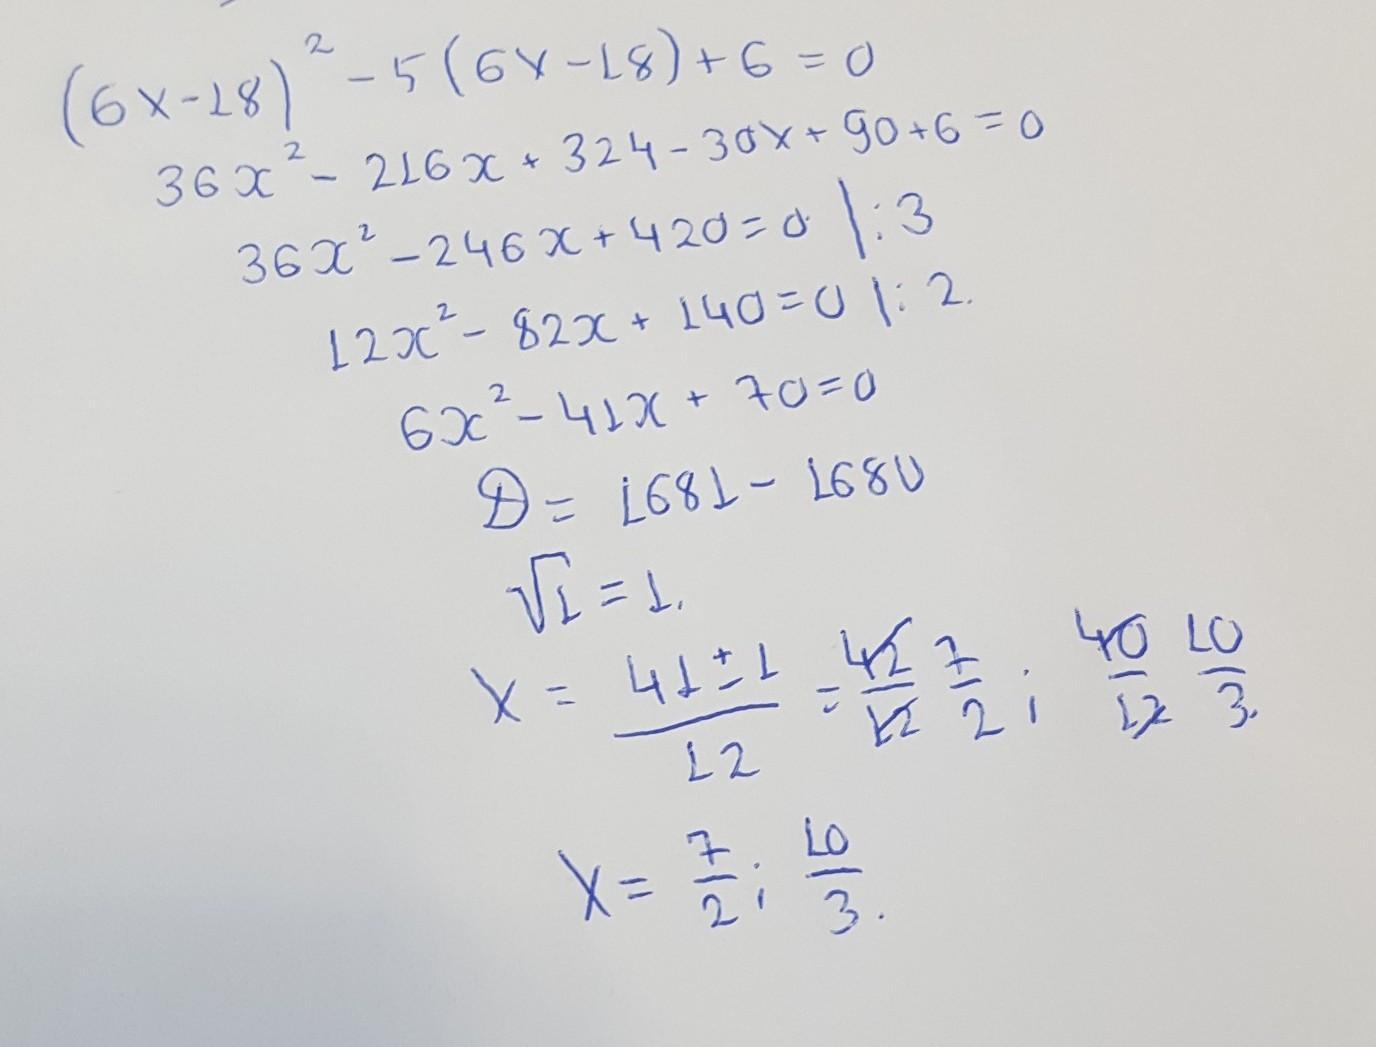 (6x-18)² - 5(6x-18) + 6 = 0
36x² - 216x + 324 - 30x + 90 + 6 = 0
36x² - 246x + 420 = 0 |:3
12x² - 82x + 140 = 0 |:2.
6x² - 41x + 70 = 0
D = 1681 - 1680
√1 = 1.
x = (41±1)/12 = 42/12 7/2 ; 40/12 10/3.
x = 7/2 ; 10/3.